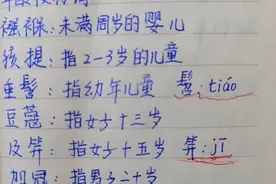 襁褓:未满周岁的婴儿
孩提:指2-3岁的儿童
垂髫:指幼年儿童 髫:tiáo
豆蔻:指女子十三岁
及笄:指女子十五岁 笄:jī
加冠:指男子二十岁